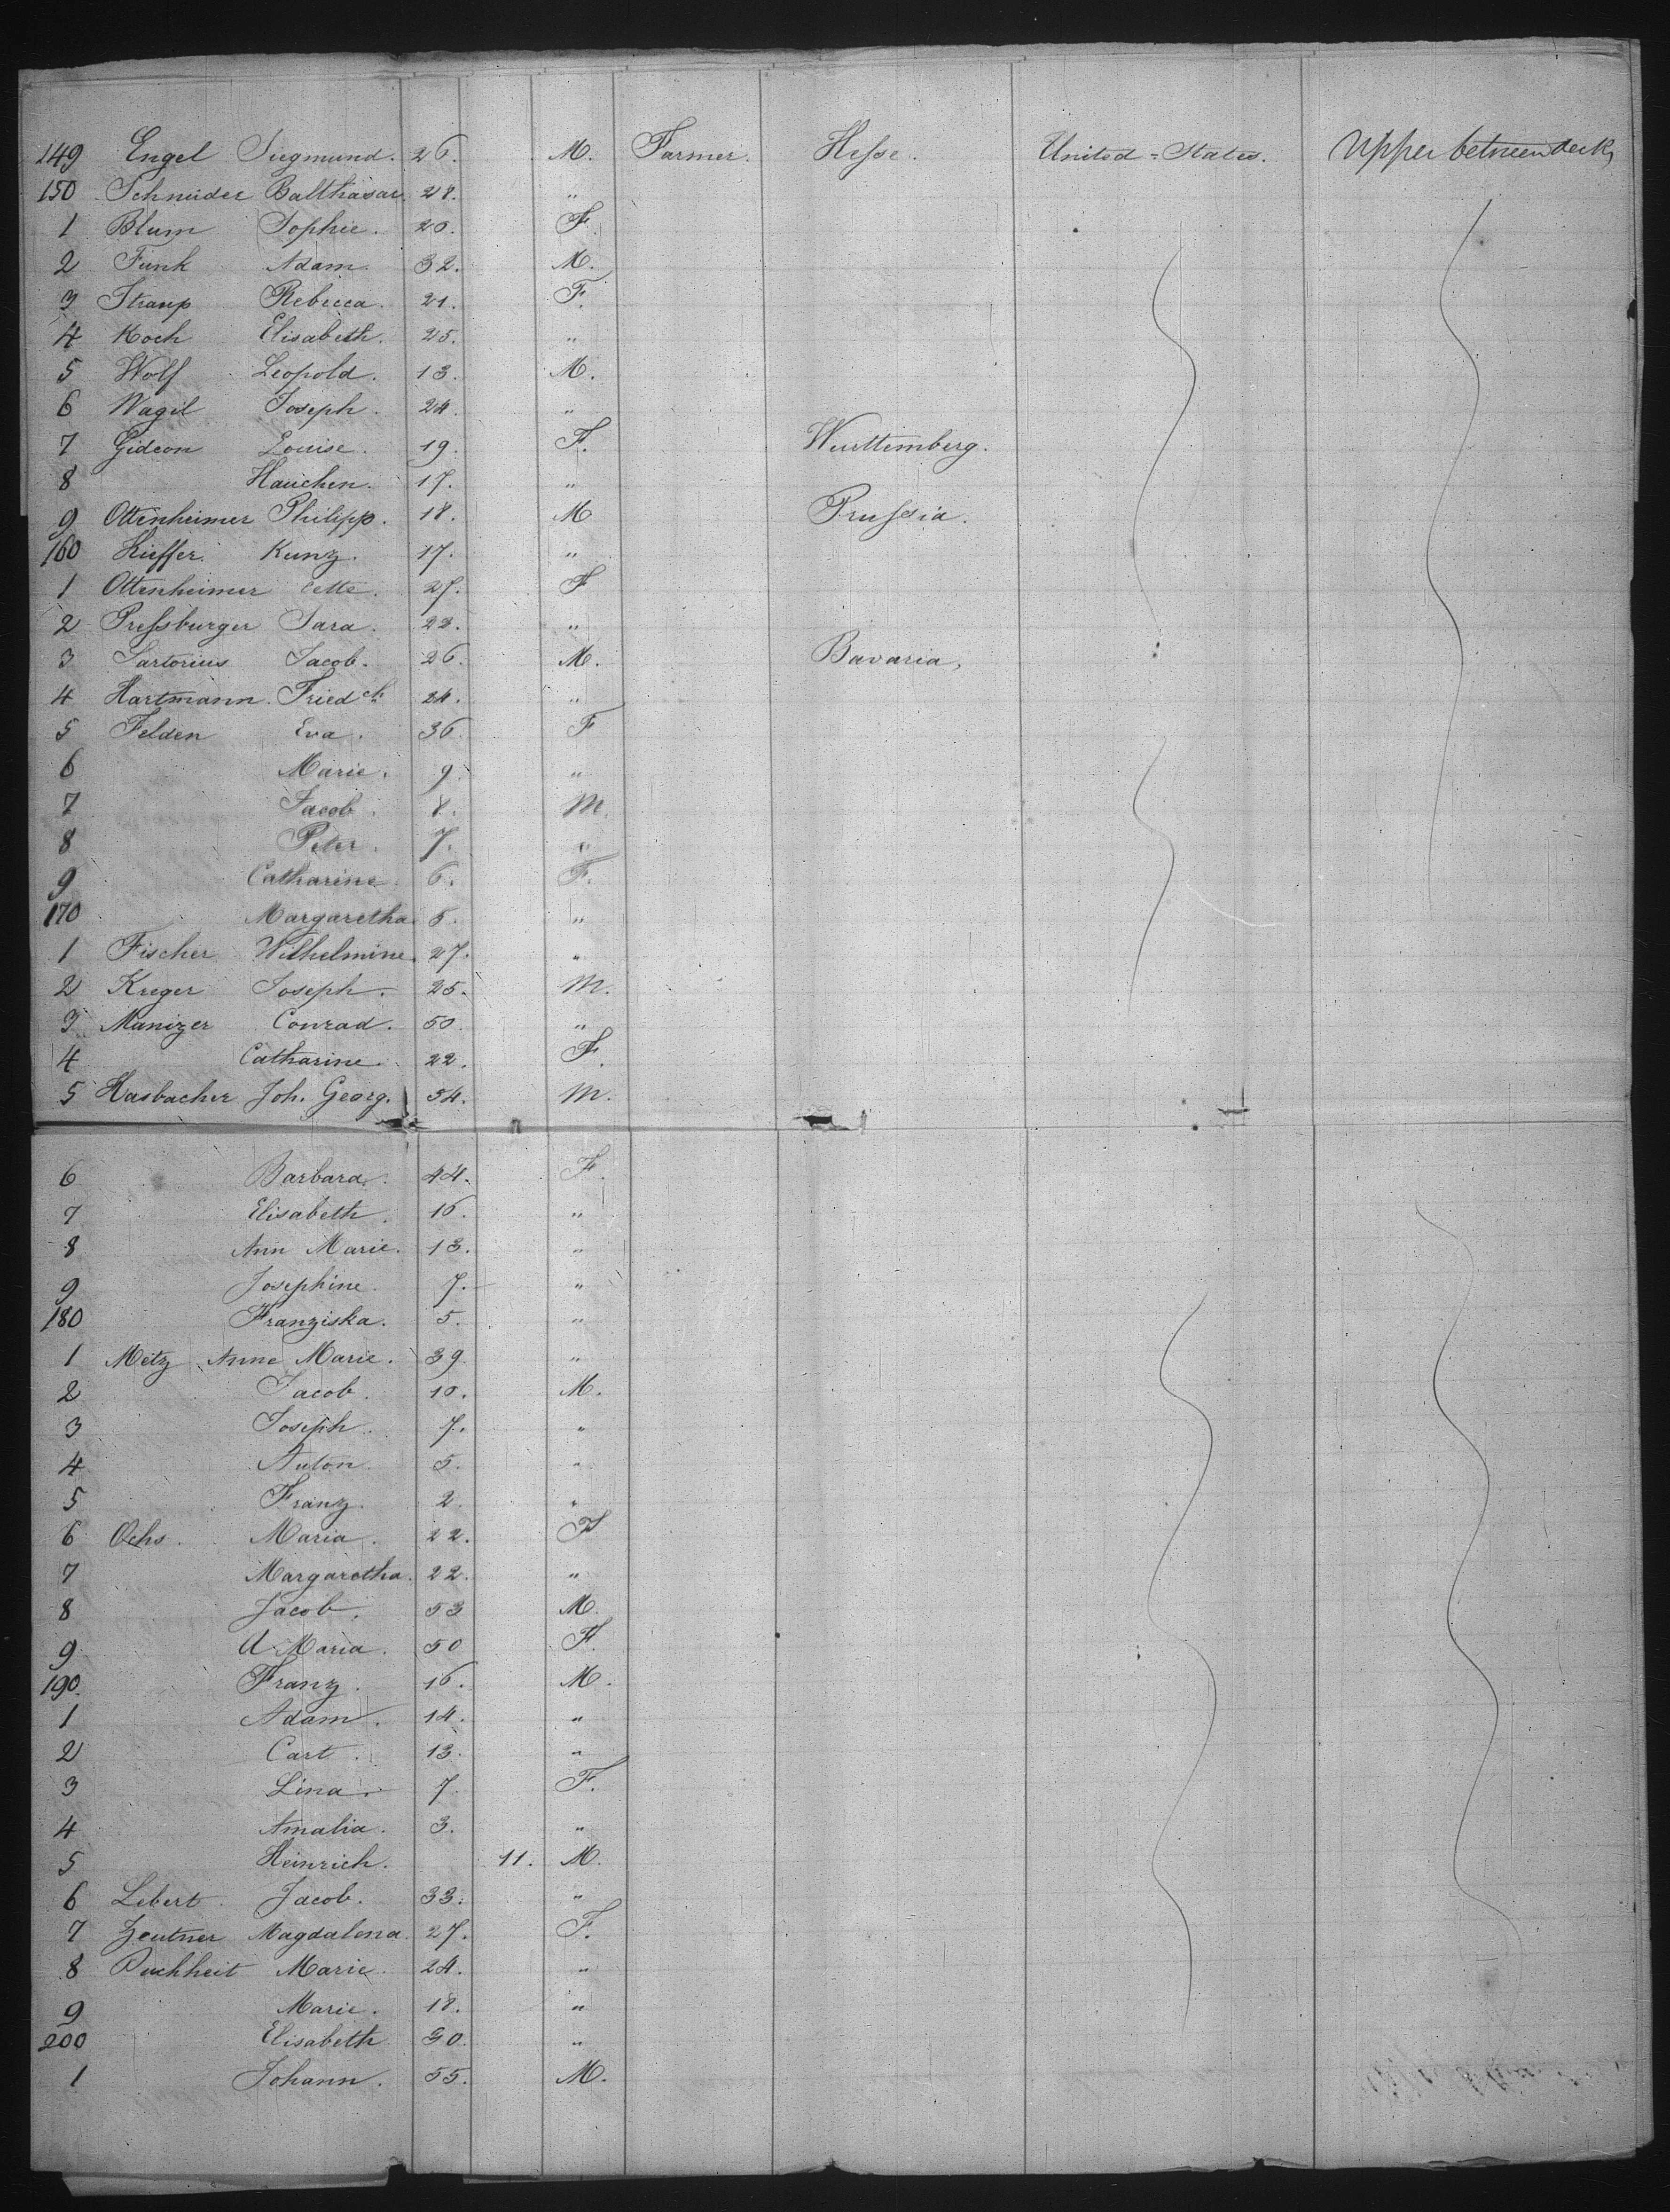 149 Engel Siegmund. 26. M. Farmer. Hesse. United=States. Upper betweendeck,
150 Schneider Balthasar 28. "
1 Blum Sophie. 20. F.
2 Funk Adam. 32. M.
3 Straup Rebecca. 21. F.
4 Koch Elisabeth. 25. "
5 Wolf Leopold. 13. M.
6 Nagil Joseph. 24. "
7 Gideon Louise. 19. F. Wurttemberg.
8 Hauchen. 17. "
9 Ottenheimer Philipp. 18. M Prussia.
160 Kieffer. Kunz. 17. "
1 Ottenheimer 27. F
2 Pressburger Sara. 23. "
3 Sartorius Jacob. 26. M. Bavaria,
4 Hartmann. Friedch 24. "
5 Felden Eva. 36. F
6 Marie. 9. "
7 Jacob. 8. M.
8 Peter. 7. "
9 Catharine. 6. F.
170 Margaretha. 5. "
1 Fischer Wilhelmine. 27. "
2 Kreger Joseph. 25. M.
3 Manizer Conrad. 50. "
4 Catharine. 22. F.
5 Hasbacher Joh. Georg. 54. M.
6 Barbara. 44. F.
7 Elisabeth. 16. "
8 Ann Marie. 13. "
9 Josephine. 7. "
180 Franziska. 5. "
1 Metz Anne Marie. 39. "
2 Jacob. 10. M.
3 Joseph. 7. "
4 Anton. 5. "
5 Franz. 2. "
6 Ochs. Maria. 22. F
7 Margaretha. 22. "
8 Jacob. 53 M.
9 A Maria. 50 F.
190. Franz. 16. M.
1 Adam. 14. "
2 Carl. 13. "
3 Lina. 7. F.
4 Amalia. 3. "
5 Heinrich. 11. M.
6 Lebert. Jacob. 33. "
7 Zeutner Magdalena. 27. F.
8 Puchheit Marie. 24. "
9 Marie. 18. "
200 Elisabeth 30. "
1 Johann. 55. M.